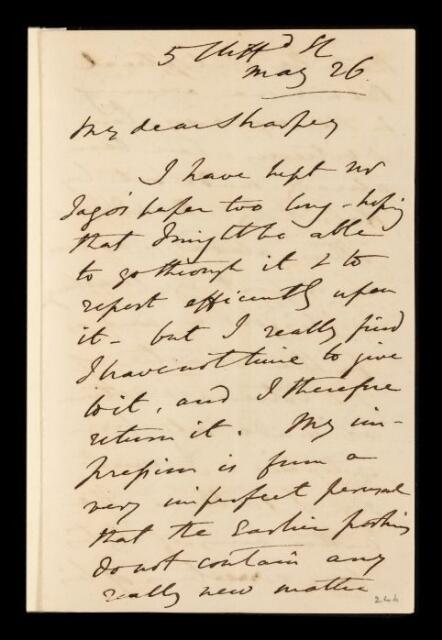 5 Cliffd St
May 26
My dear Sharpey
I have kept Mr
Jago's paper too long - hoping
that I might be able
to go through it & to
report efficiently upon
it - but I really find
I have not time to give
to it, and I therefore
return it. My im-
pression is from a
very imperfect perusal
that the Earlier portions
do not contain any
really new matter